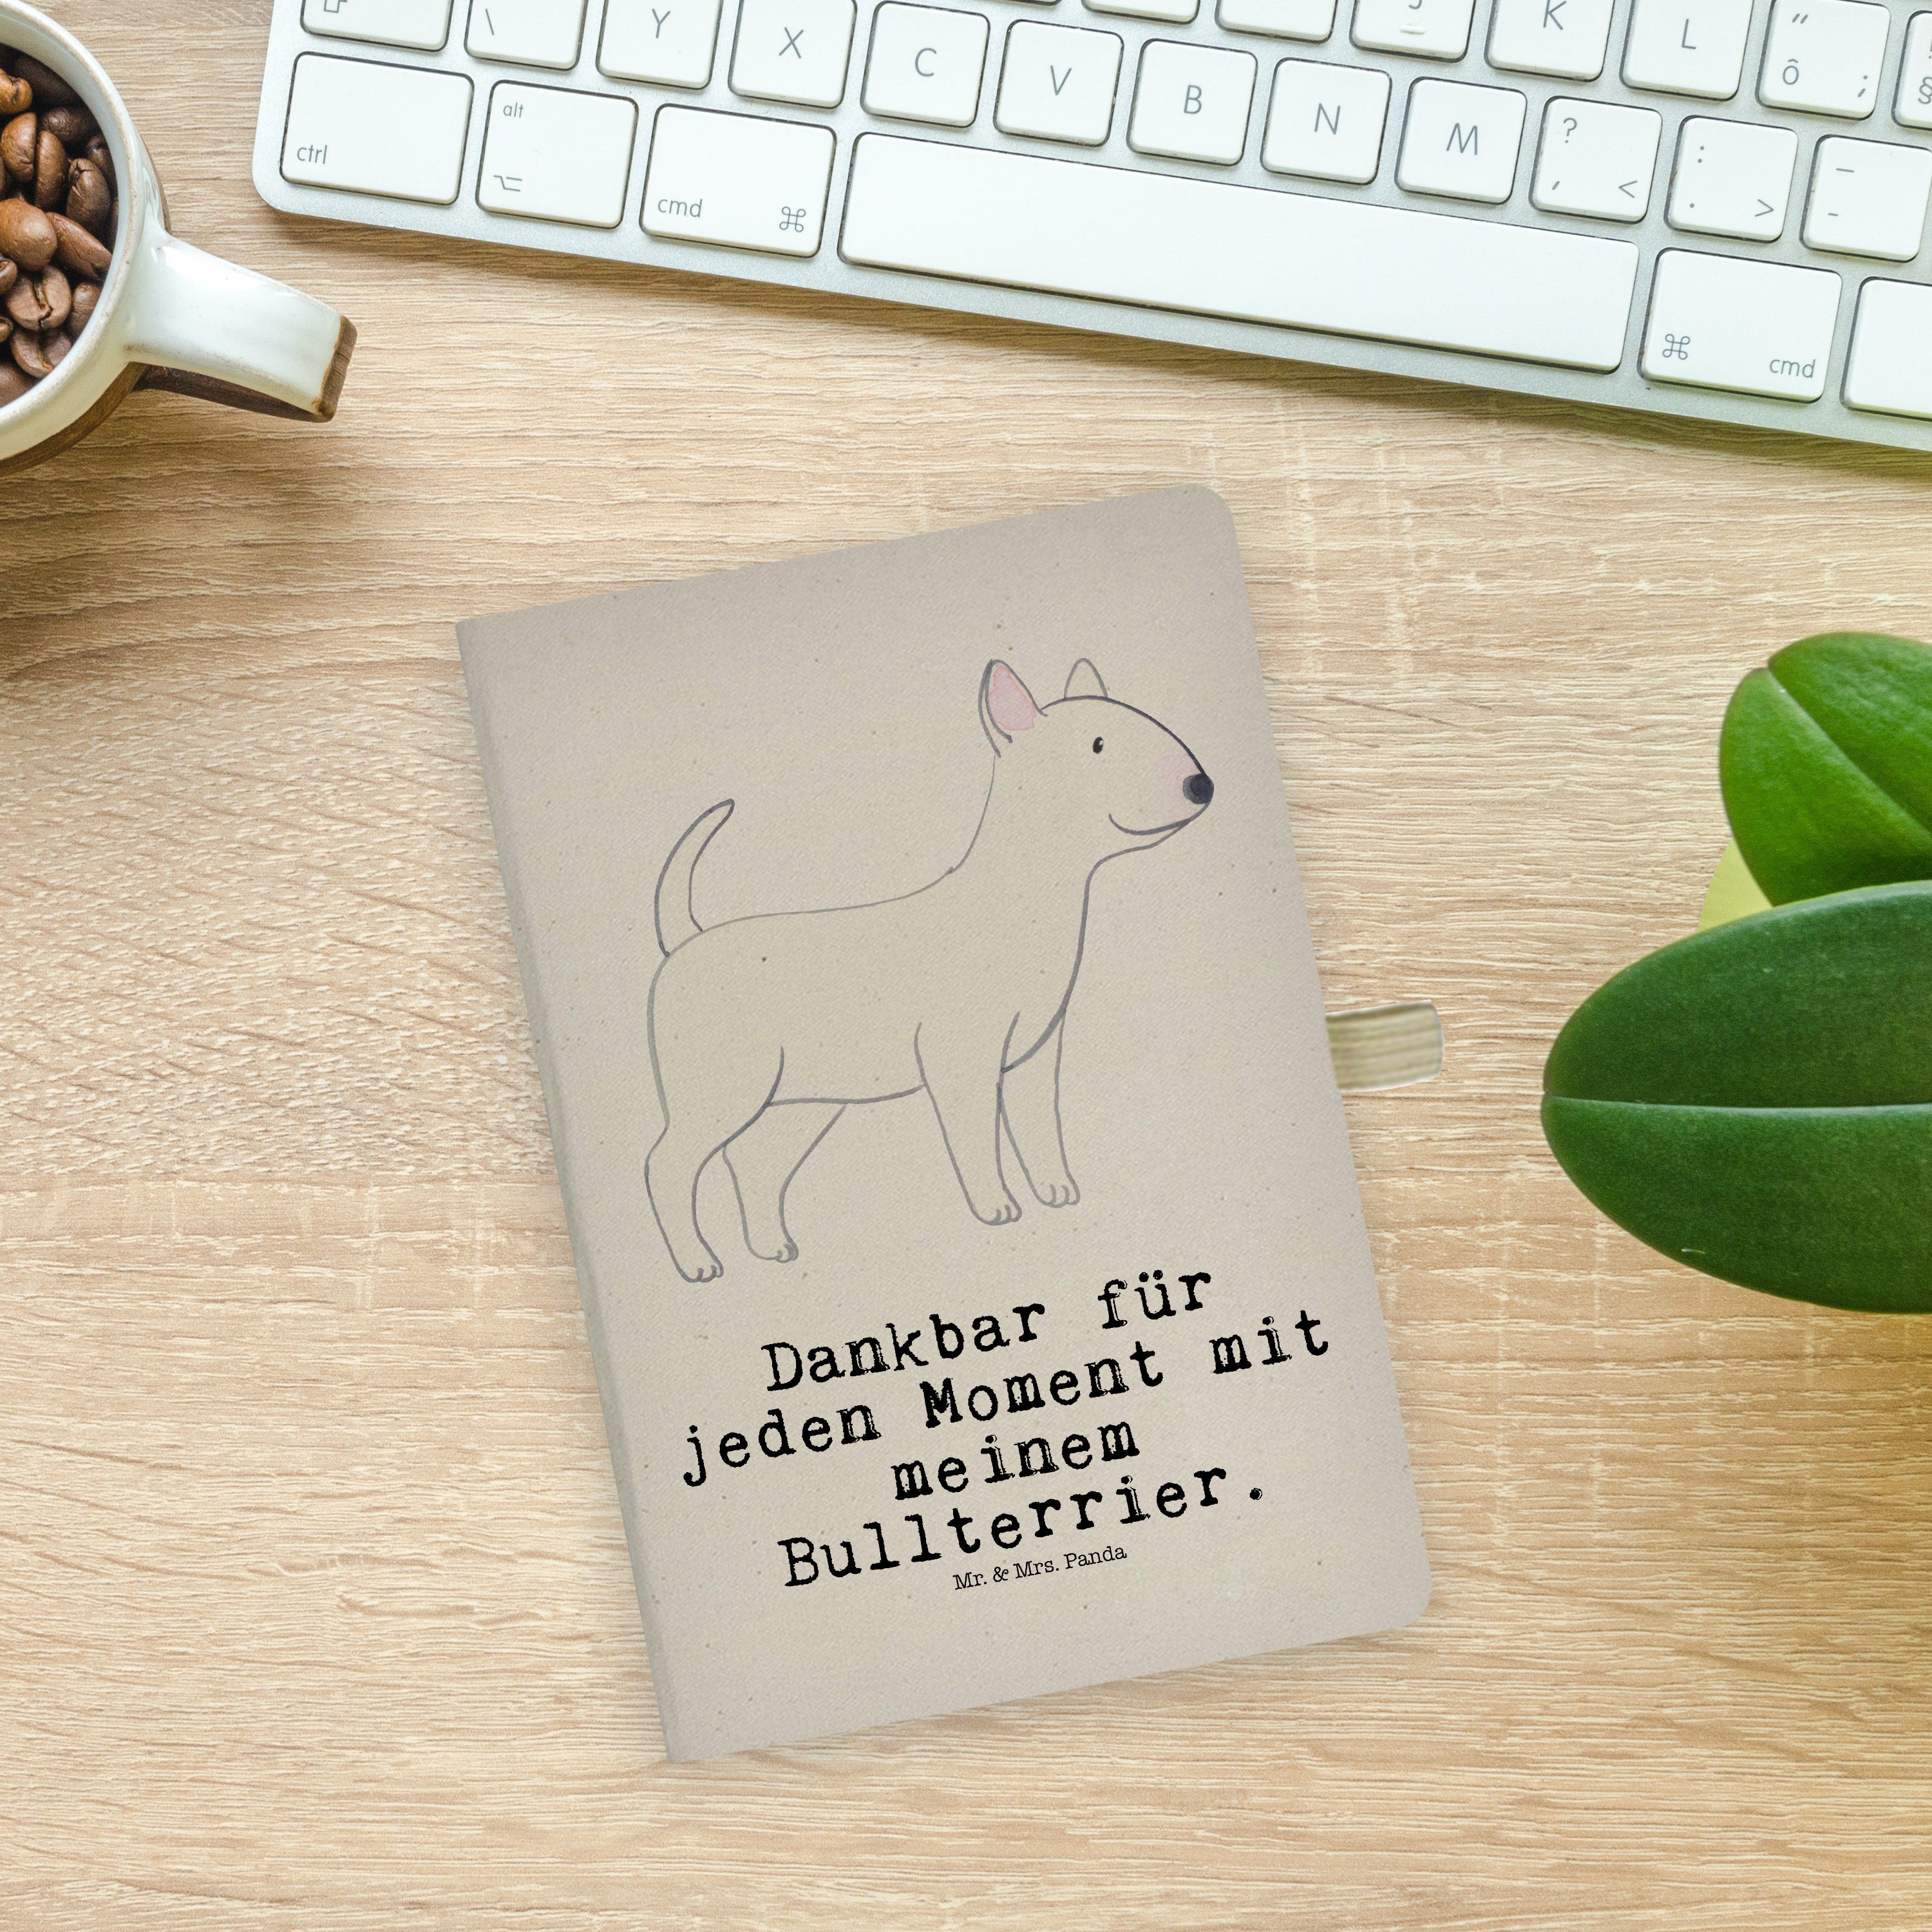 \ Y X C V B N M J K L
ctrl alt cmd ? , < : . > _ -
cmd
Ô ;
Dankbar für
jeden Moment mit
meinem
Bullterrier.
Mr. & Mrs. Panda